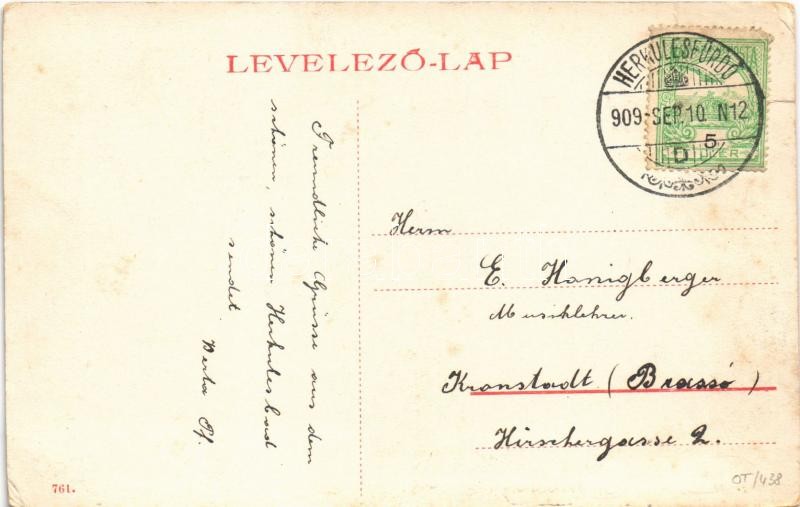 LEVELEZŐ-LAP
HERKULESFÜRDŐ
909-SEP.10. N12
5
D
Freundliche Grüsse aus dem
schönen, schönen Herkulesbad
sendet
Berta Pf.
Herrn
E. Honigberger
Musiklehrer.
Kronstadt (Brassó)
Hirschergasse 2.
761.
OT/438